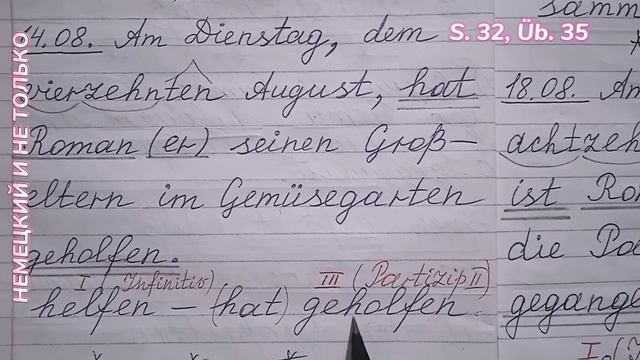 НЕМЕЦКИЙ И НЕ ТОЛЬКО
S. 32, Üb. 35
14.08. Am Dienstag, dem
vierzehnten August, hat
Roman (er) seinen Groß–
eltern im Gemüsegarten
geholfen.
I Infinitiv) III (Partizip II)
helfen – (hat) geholfen.
samm
18.08. Am
achtzeh
ist Ro
die Pa
gegang
I